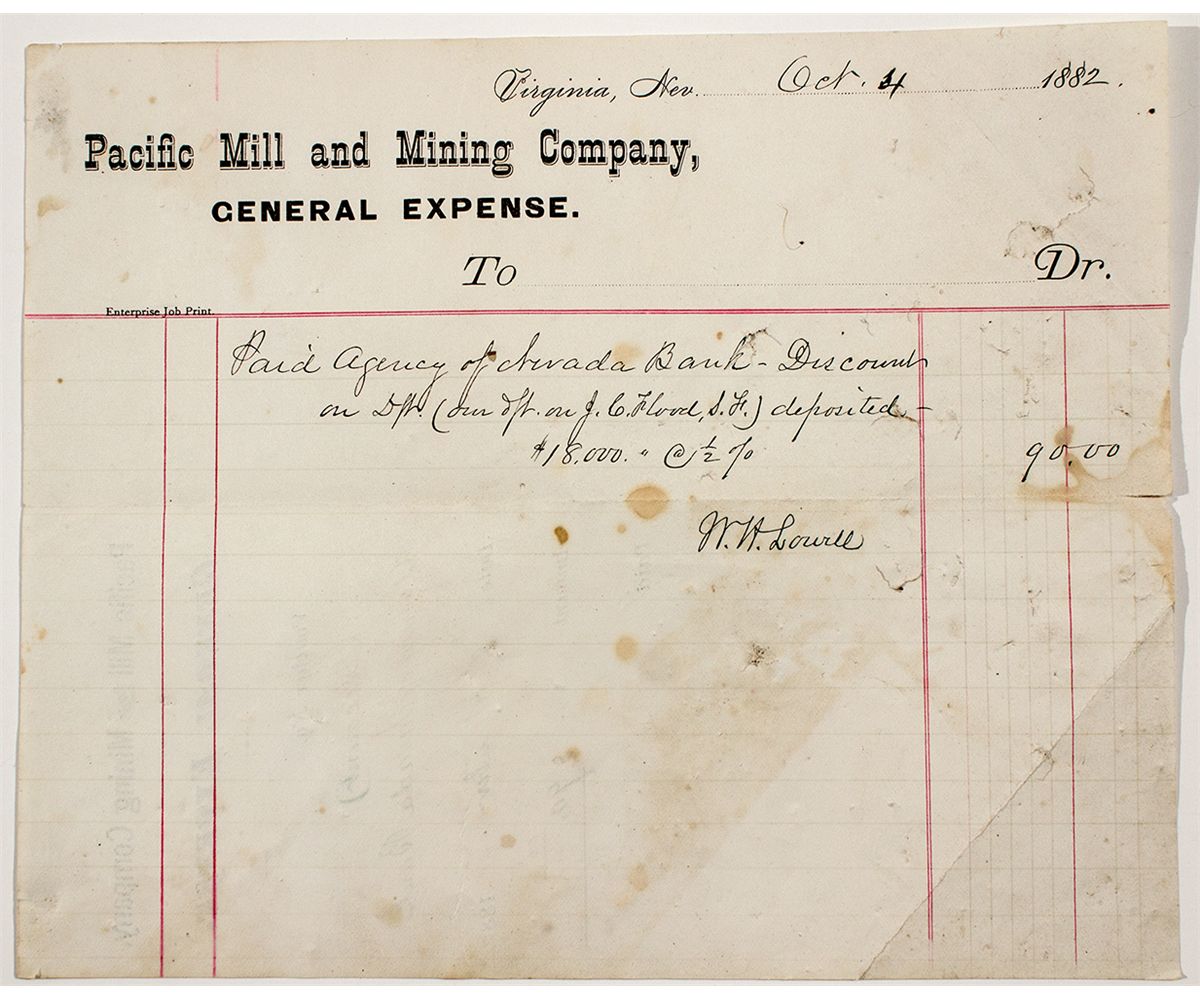 Virginia, Nev. Oct. 4 1882.
Pacific Mill and Mining Company,
GENERAL EXPENSE.
To Dr.
Enterprise Job Print.
Paid Agency of Nevada Bank - Discount
on Dft. (our dft. on J. C. Flood, S. F.) deposited -
$18,000. " @ ½ % 90.00
W. H. Lowell